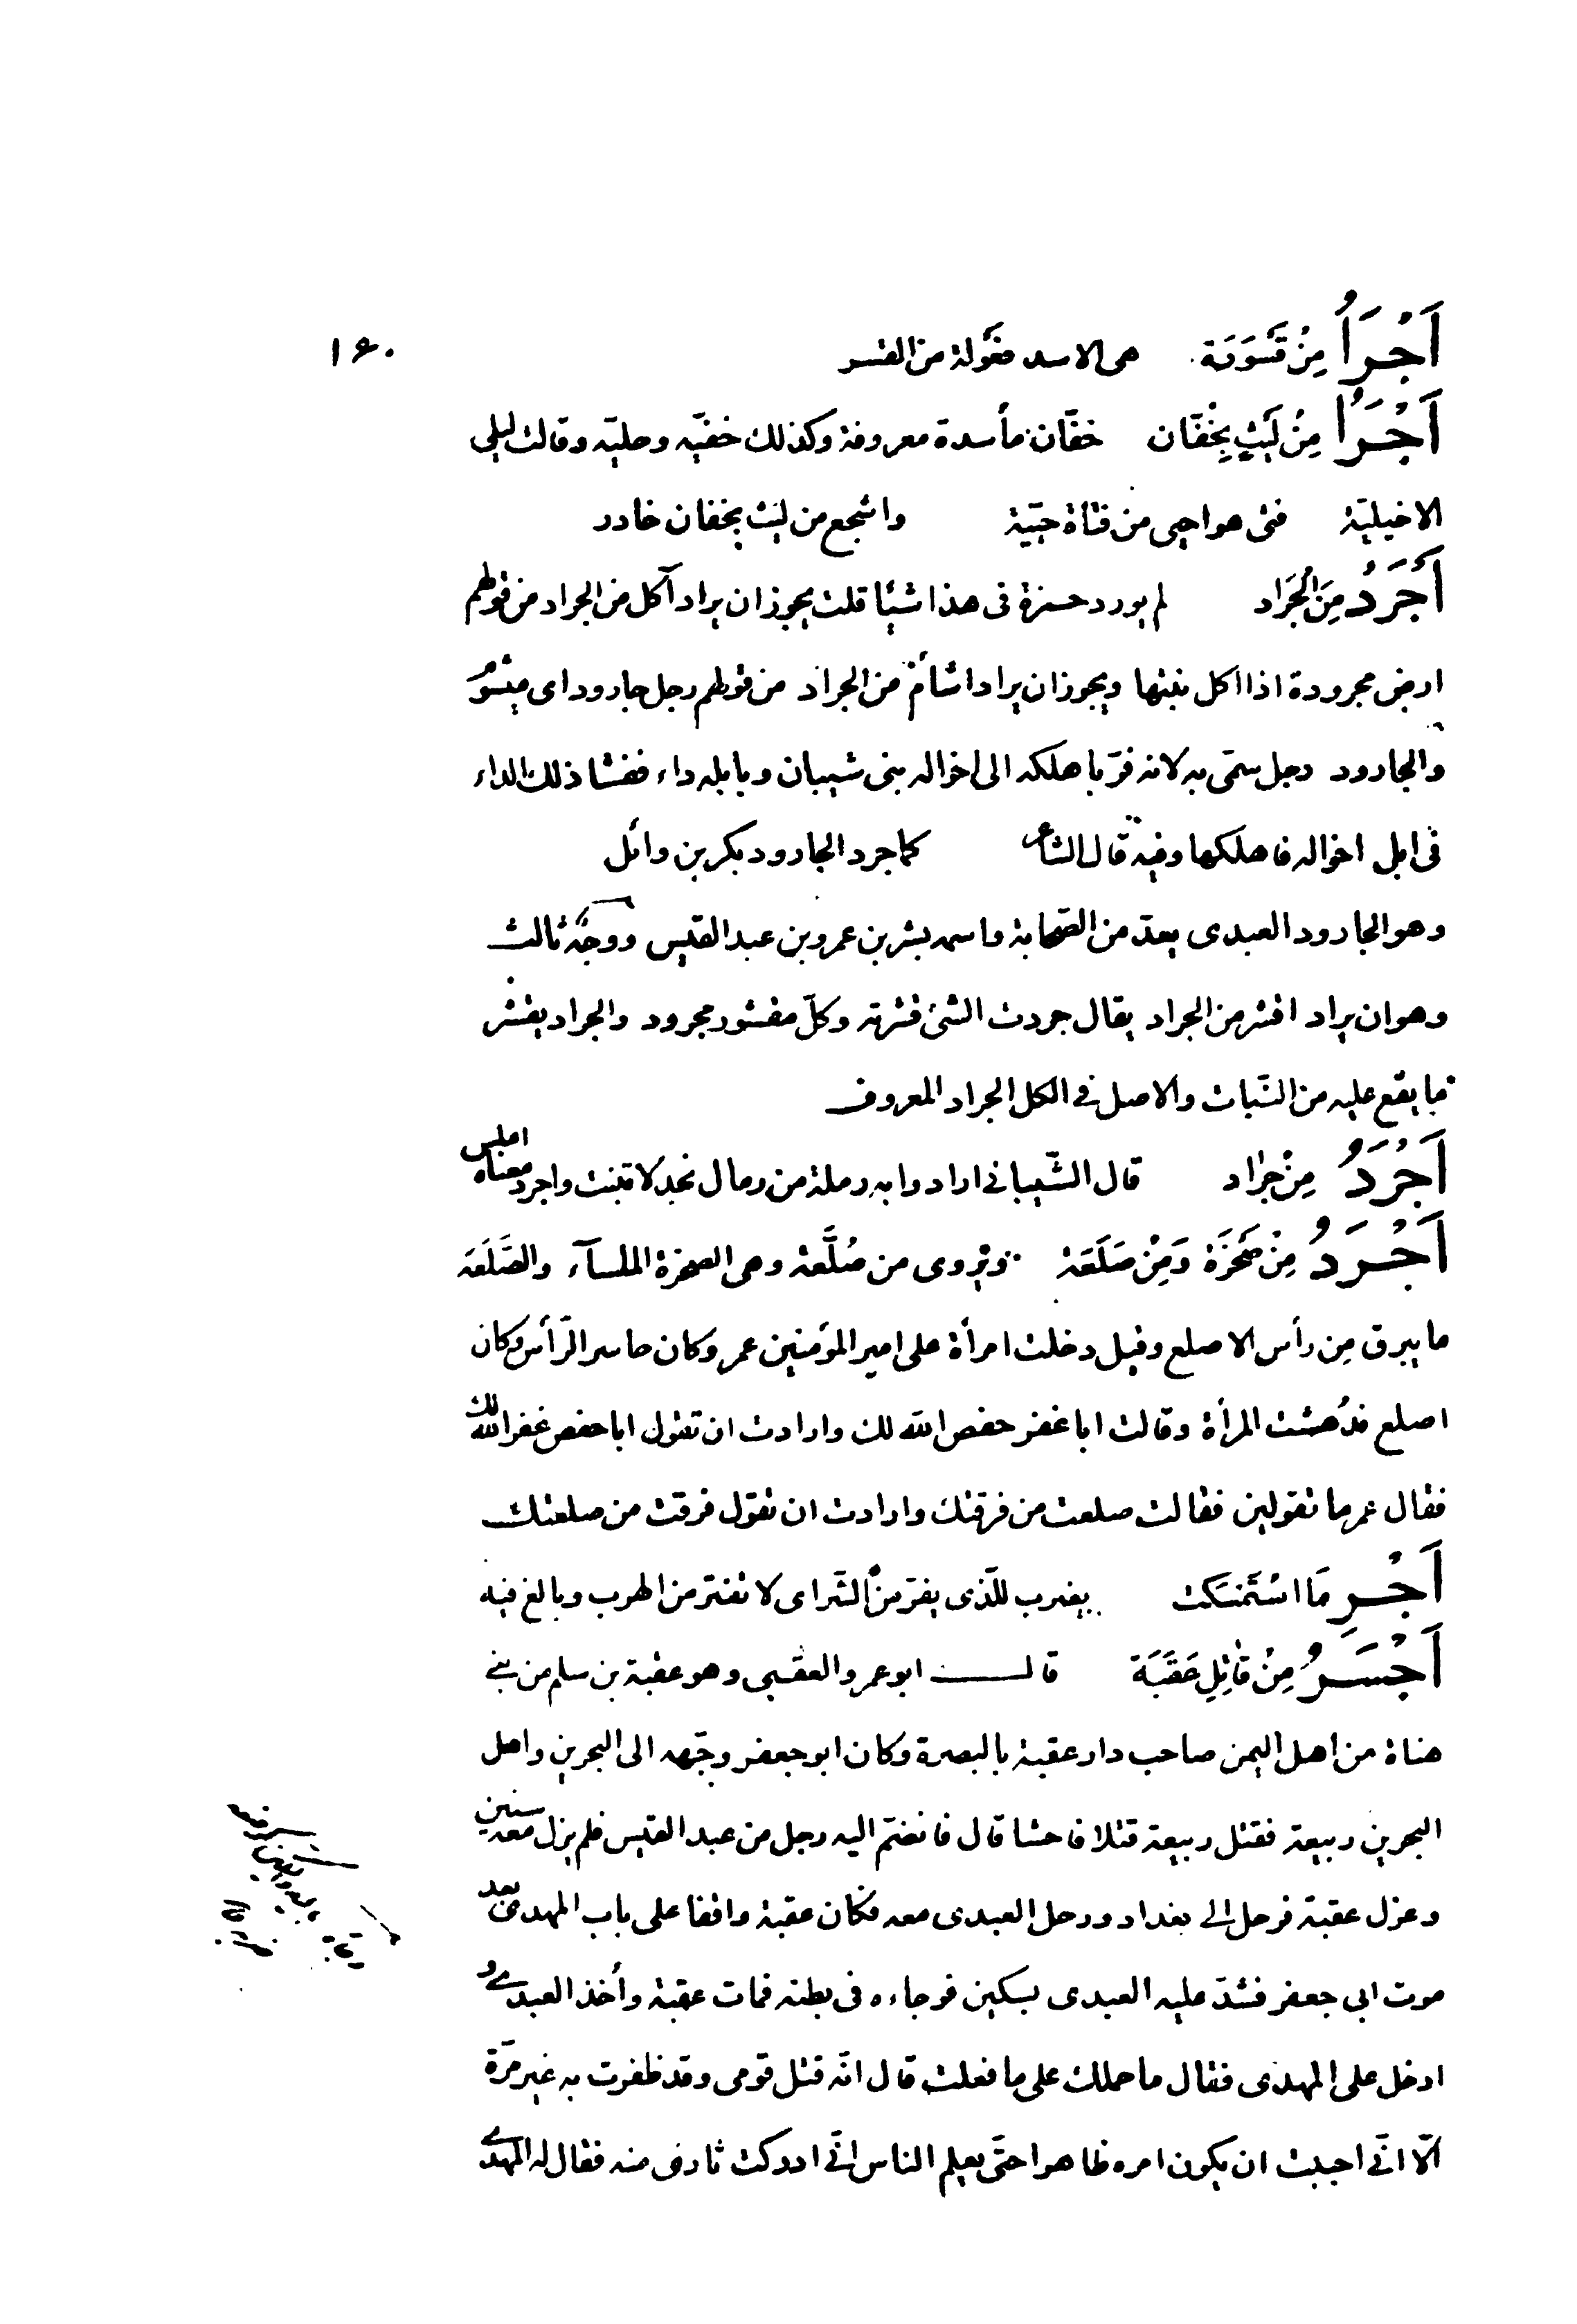 ١۶٠
اَجْرَأُ مِنْ قَسْوَرَة هى الاسد فعولة من القسر
اَجْرَأُ مِنْ لَيْثٍ بِخَفّان خفّان مأسدة معروفة وكذلك خفيّه وحليّه وقالت ليلى
الاخيليّة فتى هو احيى من فتاة حييّة واشجع من ليث بخفان خادر
اَجْرَدُ مِنَ الْجَرَاد لم يورد حمزة فى هذا شيئا قلت يجوز ان يراد آكل من الجراد من قولهم
ارض مجرودة اذا اكل نبتها ويجوز ان يراد اشأم من الجراد من قولهم رجل جارود اى ميشوم
والجارود رجل سمّى به لانه فرّ باهلكه الى اخواله بنى شيبان وبابله داء ففشا ذلك الداء
فى ابل اخواله فاهلكها وفيه قال الشاعر كما جرد الجارود بكر بن وائل
وهو الجارود العبدى يعدّ من الصّحابة واسمه بشر بن عمرو بن عبد القيس ووجه ثالث
وهو ان يراد اقشر من الجراد يقال جردت الشئ قشرته وكلّ مقشور مجرود والجراد يقشر
ما يقع عليه من النّبات والاصل فى الكل الجراد المعروف
اَجْرَدُ مِنْ جَرَاد قال الشّيبانى ارادوا به رملة من رمال نجد لا تنبت واجرد معناه املس
اَجْرَدُ مِنْ صَخْرَة وَمِنْ صَلَعَة ويروى من صُلَّعة وهى الصخرة الملسآء والصَّلَعَة
ما يبرق من رأس الاصلع وقيل دخلت امرأة على امير المؤمنين عمر وكان حاسر الرّأس وكان
اصلع فدُهشت المرأة وقالت ابا غفر حفص الله لك وارادت ان تقول ابا حفص غفر الله لك
فقال عمر ما تقولين فقالت صلعت من فرقتك وارادت ان تقول فرقت من صلعتك
اَجْرِ مَا اسْتَمْسَكْت يضرب للّذى يفرّ من الشّر اى لا تفتر من الهرب وبالغ فيه
اَجْسَرُ مِنْ قَاتِلِ عَقَبَة قالـــ ابو عمرو العقبى وهو عقبة بن سلم من بنى
هناة من اهل اليمن صاحب دار عقبة بالبصرة وكان ابو جعفر وجّهه الى البحرين واهل
البحرين ربيعة فقتل ربيعة قتلا فاحشا قال فانضمّ اليه رجل من عبد القيس فلم يزل معه سنين
وعزل عقبة فرحل الى بغداد ورحل العبدى معه فكان عقبة واقفا على باب المهدى بعد
موت ابى جعفر فشدّ عليه العبدى بسكين فوجاءه فى بطنه فمات عقبة وأُخذ العبدى و
ادخل على المهدى فقال ما حملك على ما فعلت قال انّه قتل قومى وقد ظفرت به غير مرّة
الّا انّى احببت ان يكون امره ظاهرا حتّى يعلم الناس انّى ادركت ثارى منه فقال له المهدى